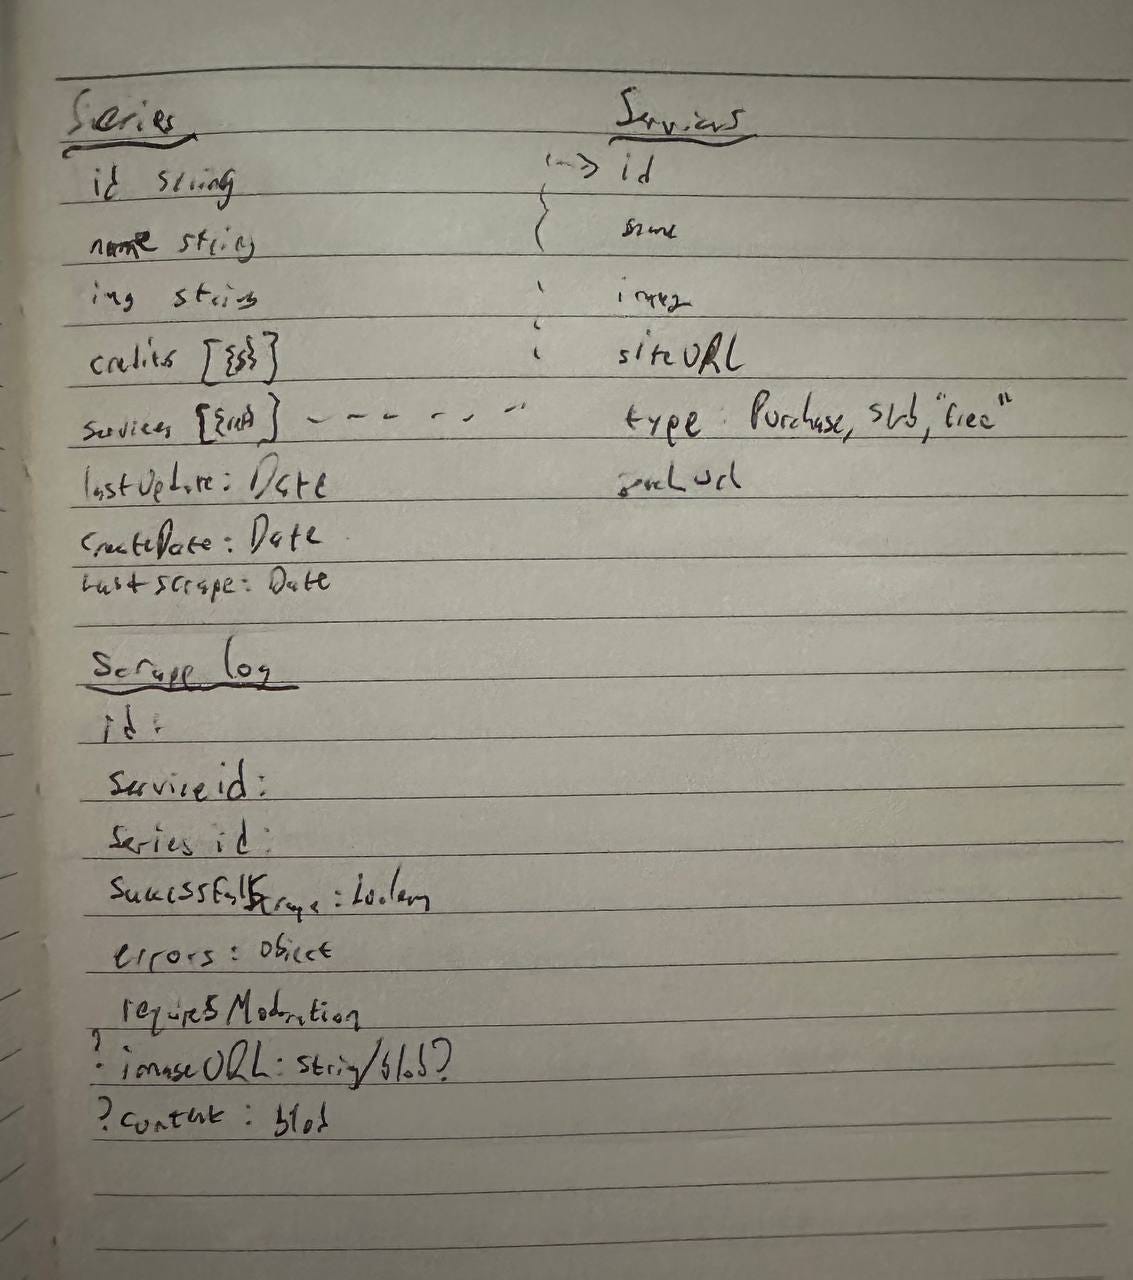 Series
id string
name string
img string
credits [{s}]
services [{ref}]
lastUpdate: Date
createDate: Date
Last scrape: Date
Services
id
name
image
siteURL
type: Purchase, sub, "free"
url
Scrape log
id:
Service id:
Series id:
SuccessfulScrape: boolean
errors: object
requiresModeration
? imageURL: string/blob?
? content: blob